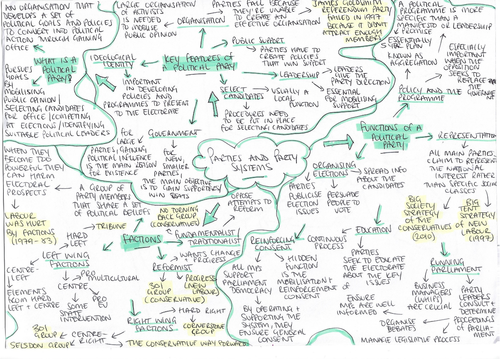 AN ORGANISATION THAT
DEVELOPS A SET OF
POLITICAL GOALS AND POLICIES
TO CONVERT INTO POLITICAL
ACTION THROUGH GAINING
OFFICE
WHAT IS A
POLITICAL
PARTY?
PURSUES
GOALS
BY
MOBILISING
PUBLIC OPINION/
SELECTING CANDIDATES
FOR OFFICE/COMPETING
AT ELECTIONS/IDENTIFYING
SUITABLE POLITICAL LEADERS
LARGE ORGANISATION
OF ACTIVISTS
IS NEEDED
TO MOBILISE
PUBLIC OPINION
ORGANISATION
PARTIES FAIL BECAUSE
THEY'RE UNABLE
TO CREATE AN
EFFECTIVE ORGANISATION
JAMES GOLDSMITH'S
REFERENDUM PARTY
FAILED IN 1997
BECAUSE IT DIDN'T
ATTRACT ENOUGH
MEMBERS
A POLITICAL
PROGRAMME IS MORE
SPECIFIC THAN A
MANIFESTO OF LEADERSHIP
+ PROMISE
ESSENTIALLY
5 YR PLAN
KNOWN AS
AGGREGATION
ESPECIALLY
IMPORTANT
WHEN THE
OPPOSITION
SEEKS TO
REPLACE
THE
GOVERNMENCE
POLICY AND THE
PROGRAMME
IDEOLOGICAL
IDENTITY
KEY FEATURES OF
A POLITICAL
PARTY?
PUBLIC SUPPORT
PARTIES HAVE TO CREATE
POLICIES THAT WIN SUPPORT
LEADERSHIP
LEADERS GIVE
THE PARTY DIRECTION
ESSENTIAL
FOR MOBILISING
SUPPORT
IMPORTANT
IN DEVELOPING
POLICIES AND
PROGRAMMES TO PRESENT
TO THE ELECTORATE
SELECT
CANDIDATES
USUALLY A
LOCAL
FUNCTION
PROCEDURES NEED
TO BE PUT IN PLACE
FOR SELECTING CANDIDATES
FUNCTIONS OF A
POLITICAL
PARTY
REPRESENTATION
ALL MAIN PARTIES
CLAIM TO REPRESENT
THE NATIONAL
INTEREST RATHER
THAN SPECIFIC
CLASSES
GOVERNMENT
FOR
LARGE
PARTIES GAINING
POLITICAL INFLUENCE
IS THE MAIN REASON
FOR EXISTENCE
FOR NEW,
SMALLER
PARTIES
THE MAIN OBJECTIVE
IS TO GAIN SUPPORT/
WIN SEATS
PARTIES AND PARTY
SYSTEMS
ORGANISING
ELECTIONS
SPREAD INFO
ABOUT THE
CANDIDATES
PARTIES
PUBLICISE
ISSUES
PERSUADE
PEOPLE TO
VOTE
WHEN THEY
BECOME TOO
POWERFUL THEY
CAN HARM
ELECTORAL
PROSPECTS
A GROUP OF
PARTY MEMBERS
THAT SHARE A SET
OF POLITICAL BELIEFS
LABOUR
WAS HURT
BY FACTIONS
(1979-83)
TRIBUNE
HARD
LEFT
FACTIONS
NO TURNING
BACK GROUP
(CONSERVATIVE)
OPPOSE
ATTEMPTS
AT REFORM
FUNDAMENTALIST
TRADITIONALIST
WANTS CHANGE
+ PROGRESS
REFORMIST
PROGRESS
(NEW
LABOUR)
301
GROUP
(CONSERVATIVE)
LEFT WING
FACTIONS
CENTRE-
LEFT
PRO
MULTICULTURAL
CENTRE
ELEMENTS
FROM HARD
LEFT +
CENTRE
PRO
SOME
STATE
INTERVENTION
RIGHT WING
FACTIONS
HARD RIGHT
CORNERSTONE
GROUP
301
GROUP
CENTRE-
RIGHT
SELSDON GROUP
THE CONSERVATIVE WAY FORWARD
REINFORCING
CONSENT
CONTINUOUS
PROCESS
ALL MPs
SUPPORT
PARLIAMENT
DEMOCRACY
HIDDEN
FUNCTION
IS THE
MOBILISATION +
REINFORCEMENT
OF CONSENT
BY OPERATING +
SUPPORTING THE
SYSTEM, THEY
ENSURE GENERAL
CONSENT
EDUCATION
PARTIES
SEEK TO EDUCATE
THE ELECTORATE
ABOUT THE KEY
ISSUES
BIG
SOCIETY
STRATEGY
OF THE
CONSERVATIVES
(2010)
BIG TENT
STRATEGY OF
NEW LABOUR
(1997)
RUNNING
PARLIAMENT
BUSINESS
MANAGERS
(WHIPS)
ENSURE
MPs ARE WELL
INFORMED
PARTY
LEADERS
ARE CRUCIAL
CONSULT +
DETERMINE
PROCEEDINGS
OF PARLIA-
MENT
ORGANISE
DEBATES
MANAGE LEGISLATIVE PROCESS